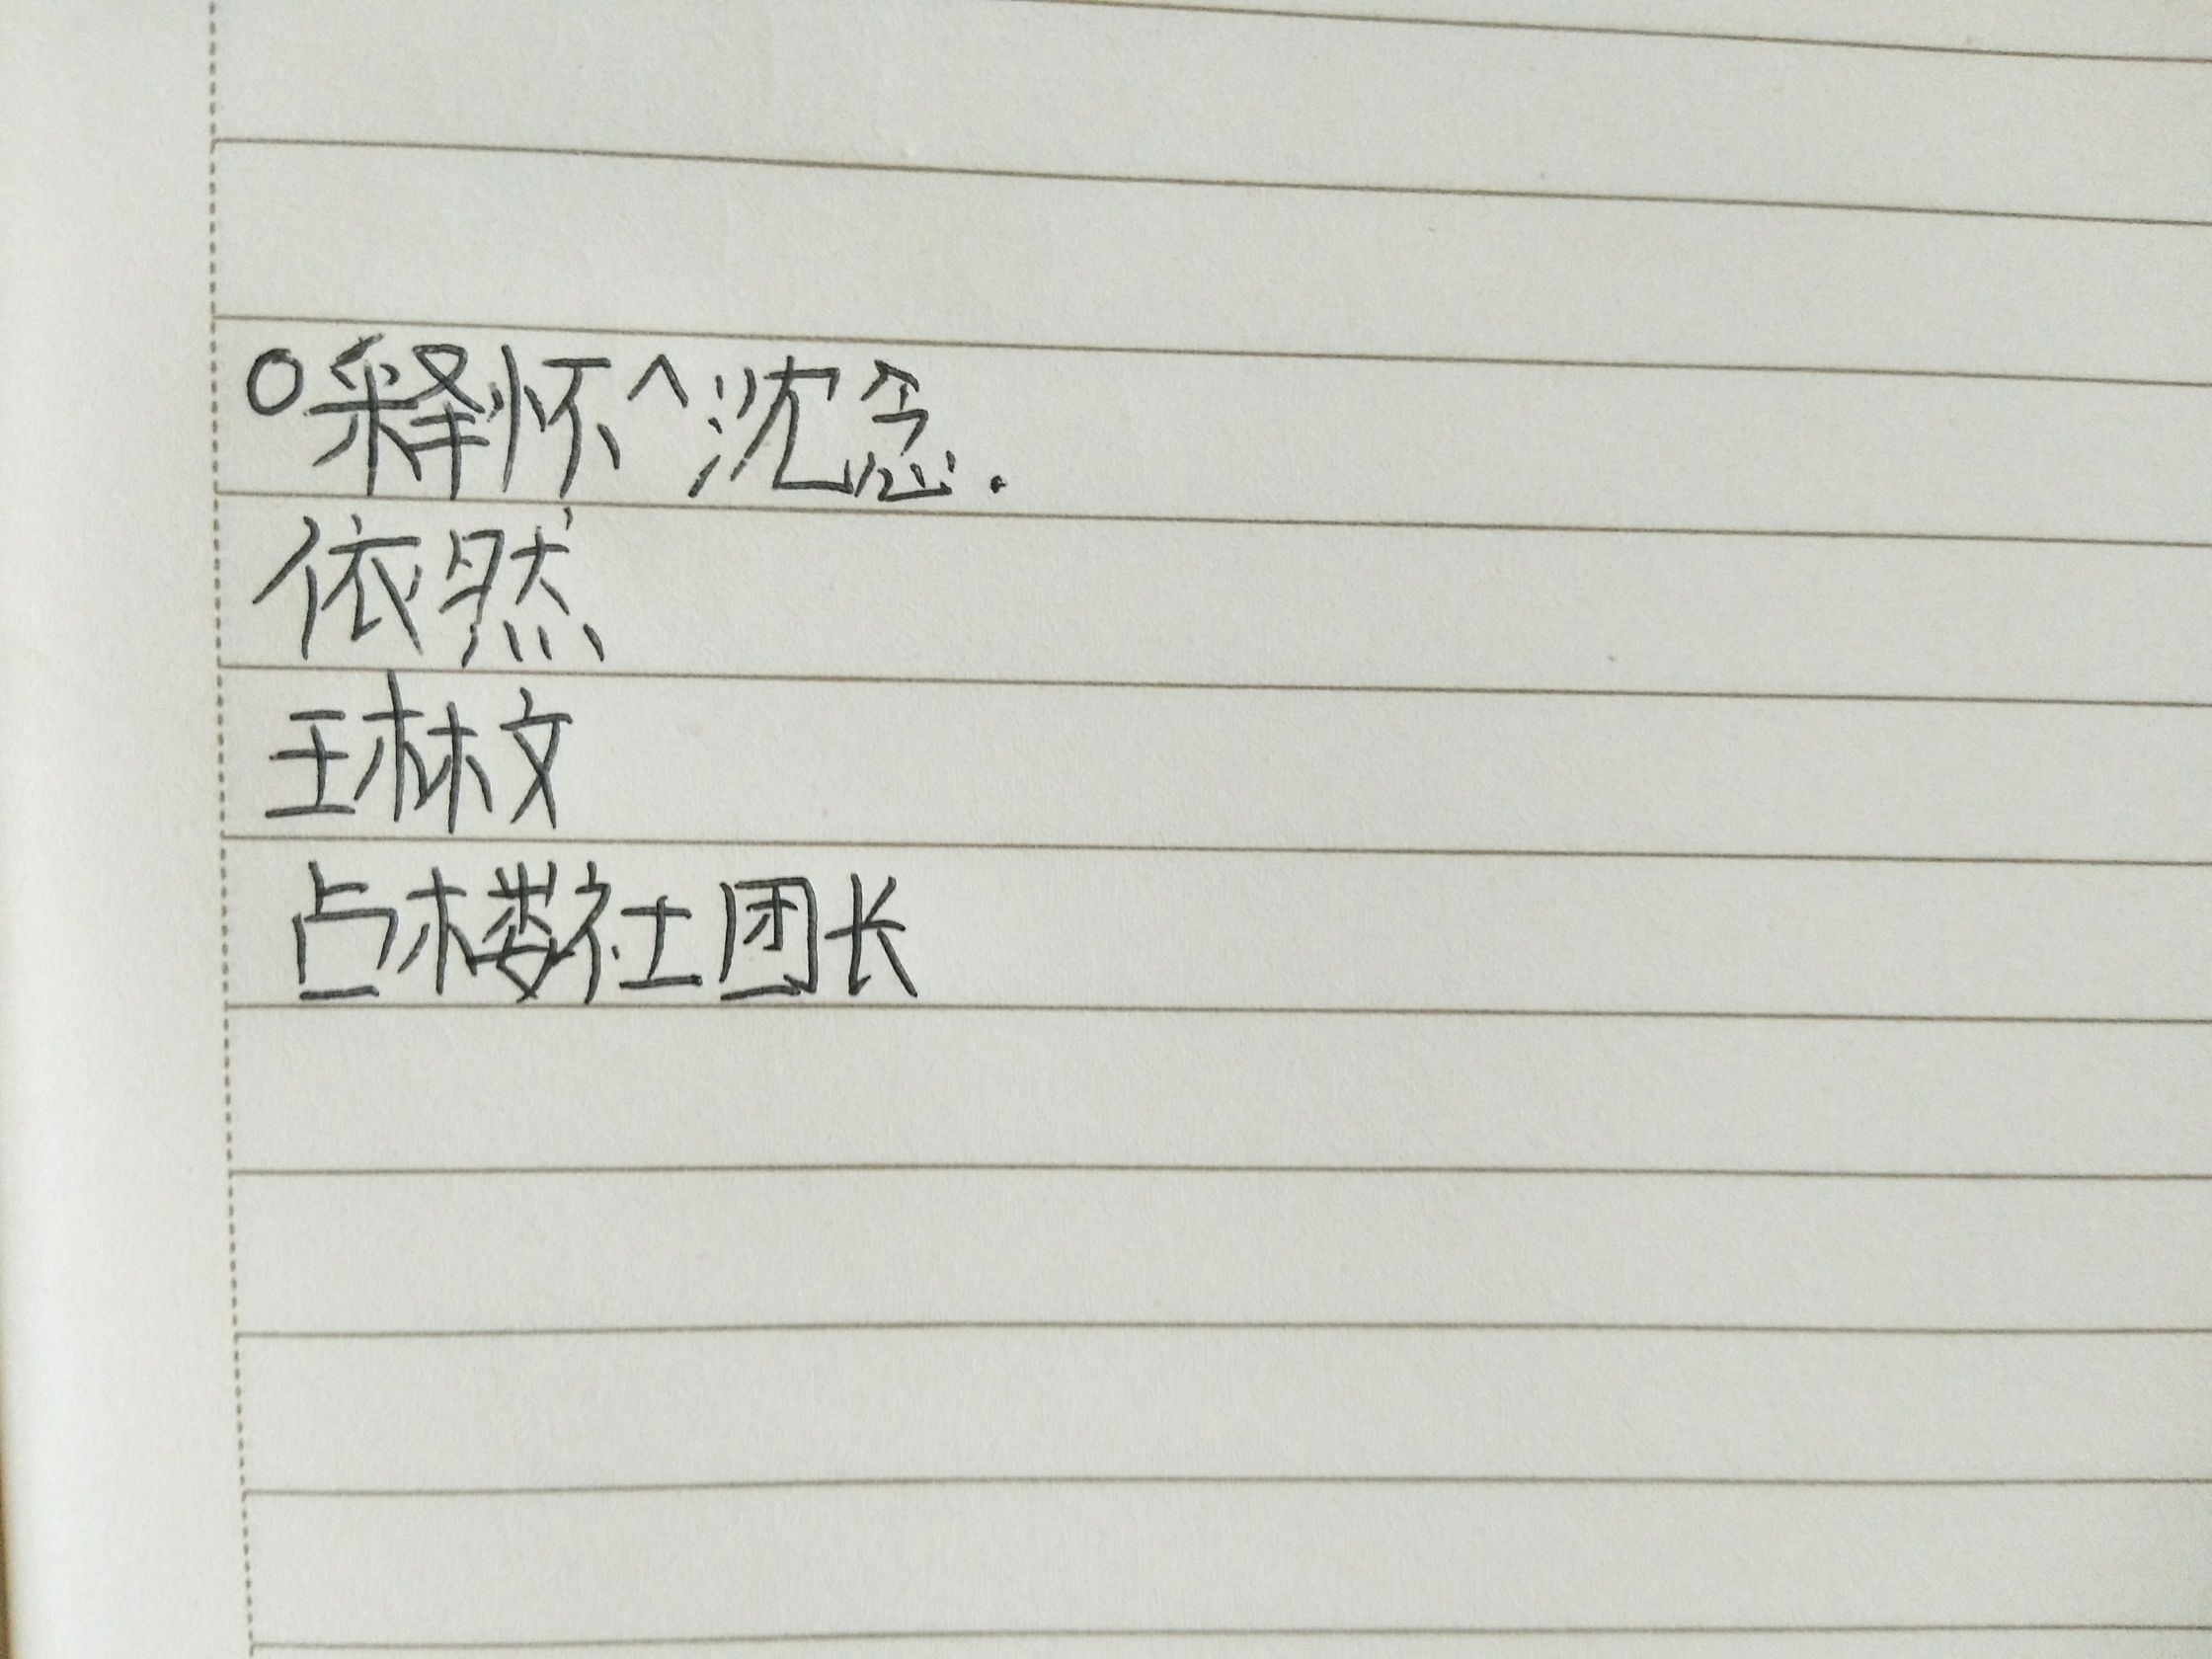 O释怀^沈念.
依然
王林文
占楼社团长